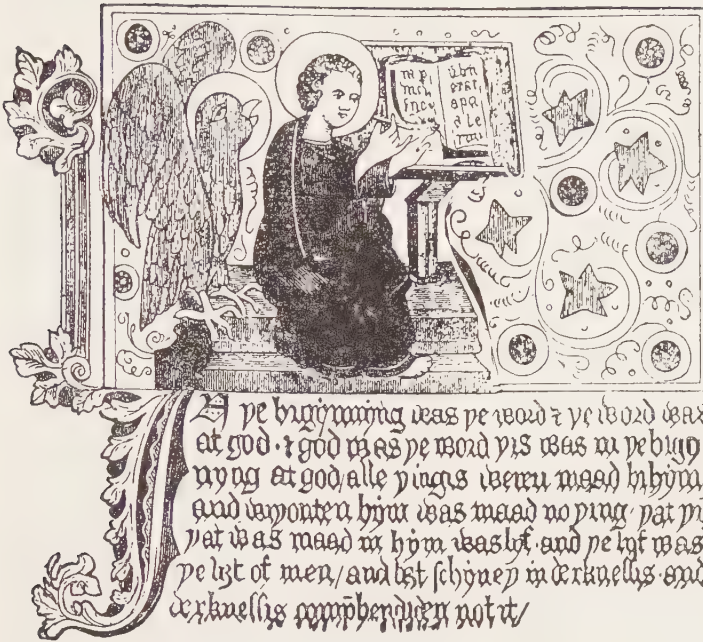 In þe bigynnyng was þe word ⁊ þe word was
at god · ⁊ god was þe word þis was in þe bigyn
nyng at god / alle þingis weren maad bi hym
and wiþouten hym was maad no þing · þat þi
þat was maad in hym was lyf · and þe lyf was
þe liȝt of men / and liȝt schyneþ in derknessis · and
derknessis comprehendiden not it /